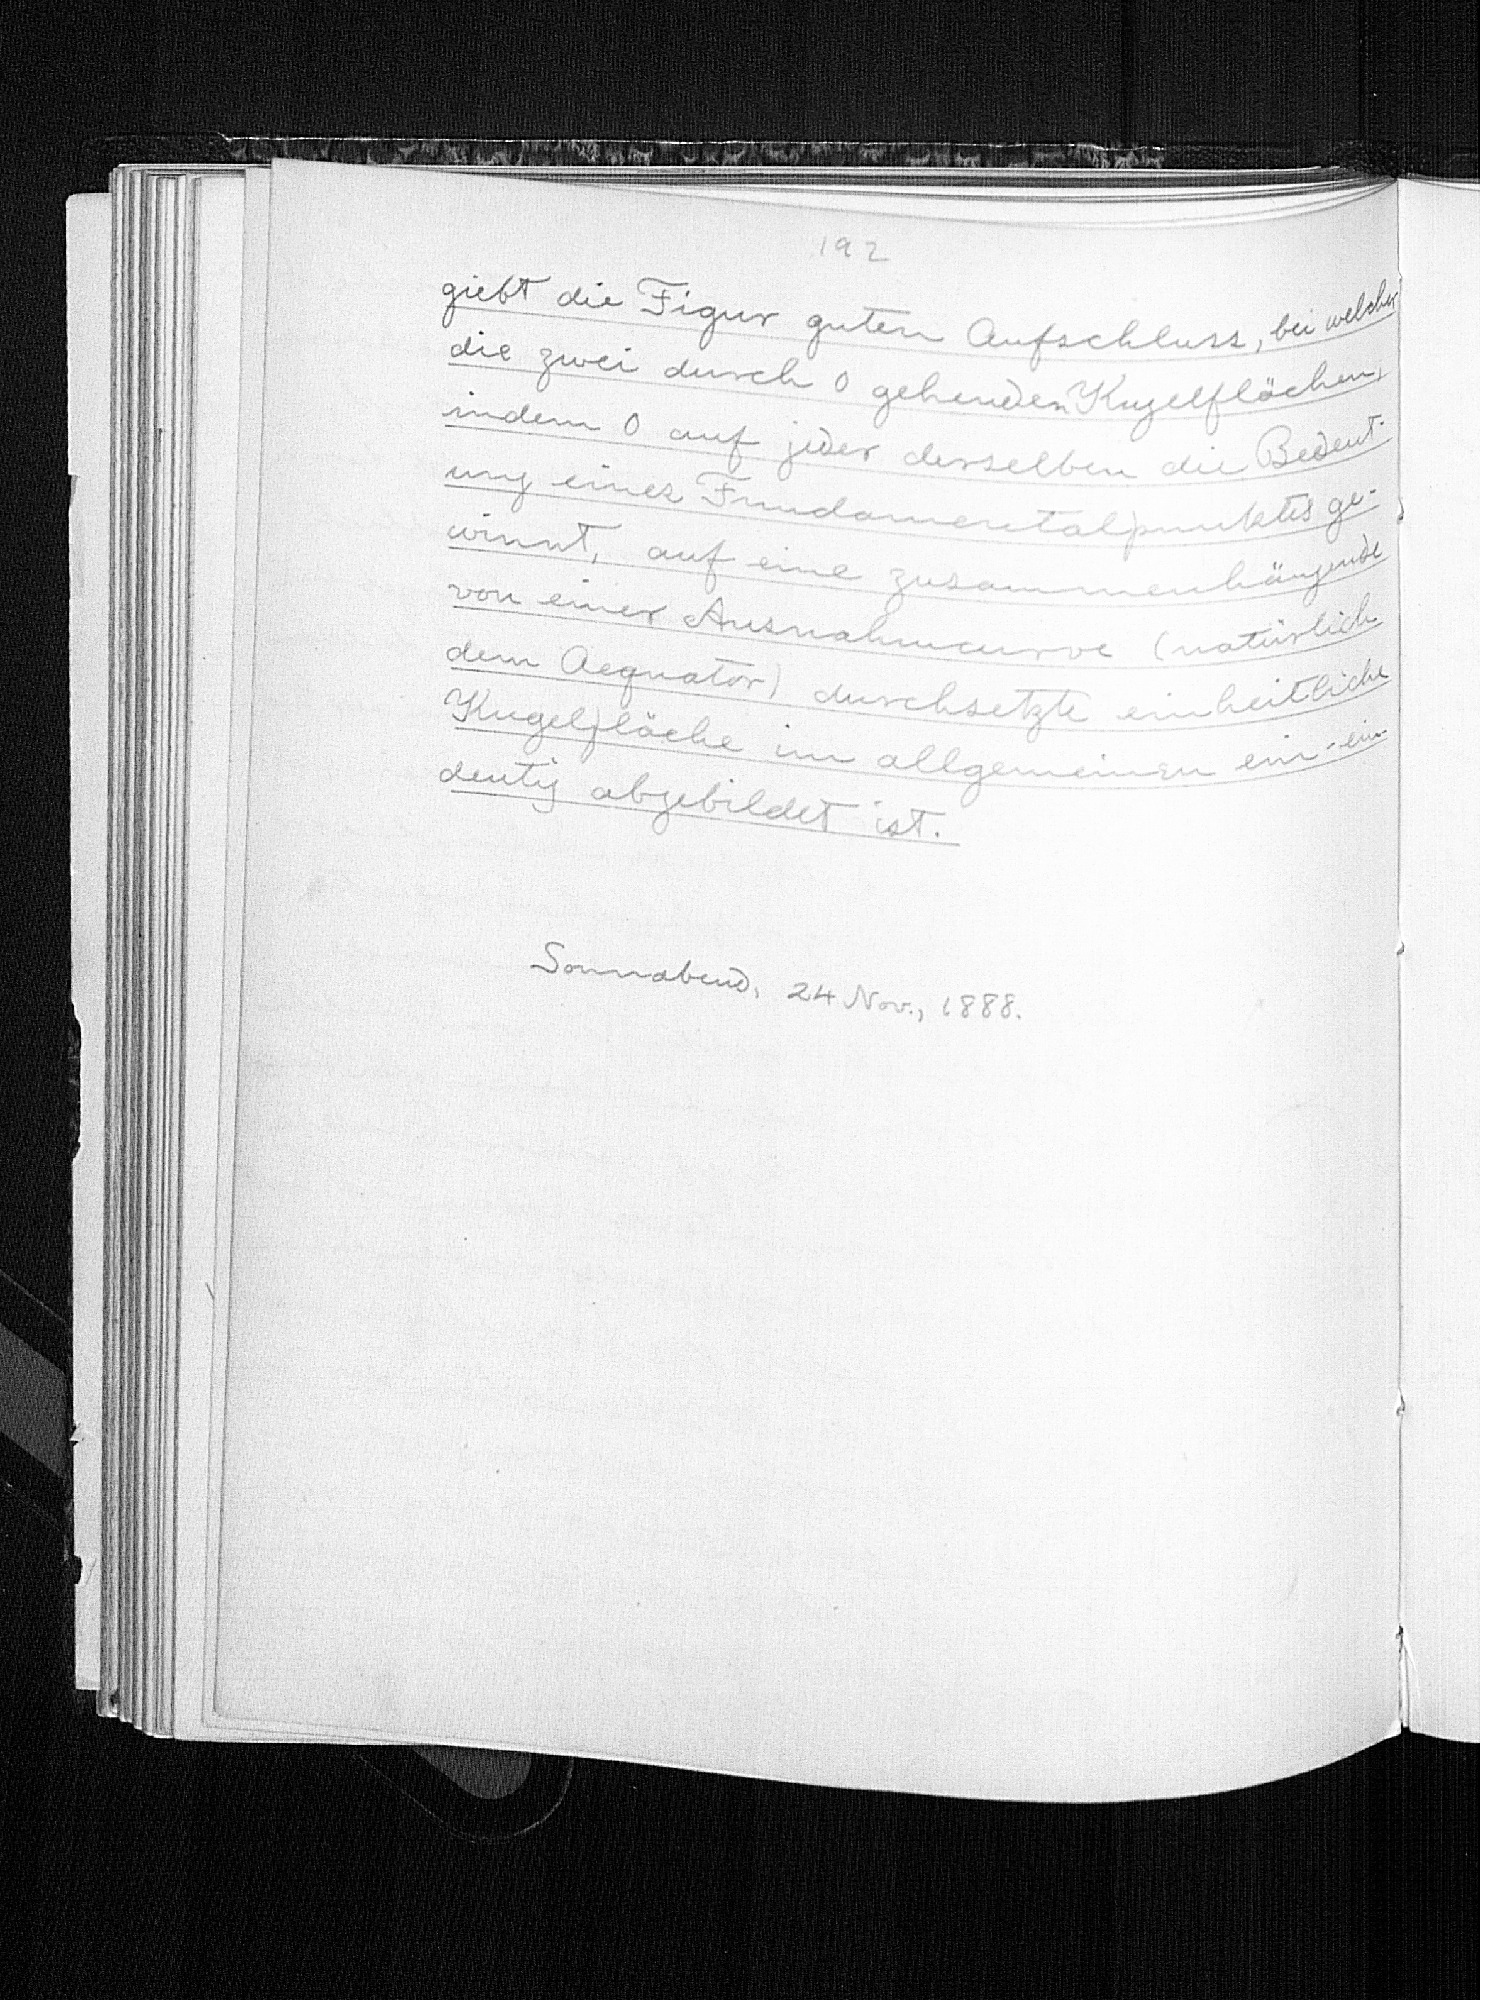 192
giebt die Figur guten Aufschluss, bei welcher
die zwei durch O gehenden Kugelflächen,
indem O auf jeder derselben die Bedeut-
ung eines Fundamentalpunktes ge-
winnt, auf eine zusammenhängende
von einer Ausnahmcurve (natürlich
dem Aequator) durchsetzte einheitliche
Kugelfläche im allgemeinen ein-ein-
deutig abgebildet ist.
Sonnabend, 24 Nov., 1888.